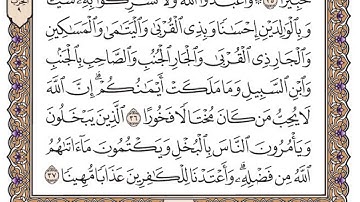 خَبِيرٗا ٣٥ ۞ وَٱعۡبُدُواْ ٱللَّهَ وَلَا تُشۡرِكُواْ بِهِۦ شَيۡـٔٗا
وَبِٱلۡوَٰلِدَيۡنِ إِحۡسَٰنٗا وَبِذِي ٱلۡقُرۡبَىٰ وَٱلۡيَتَٰمَىٰ وَٱلۡمَسَٰكِينِ
وَٱلۡجَارِ ذِي ٱلۡقُرۡبَىٰ وَٱلۡجَارِ ٱلۡجُنُبِ وَٱلصَّاحِبِ بِٱلۡجَنۢبِ
وَٱبۡنِ ٱلسَّبِيلِ وَمَا مَلَكَتۡ أَيۡمَٰنُكُمۡۗ إِنَّ ٱللَّهَ
لَا يُحِبُّ مَن كَانَ مُخۡتَالٗا فَخُورًا ٣٦ ٱلَّذِينَ يَبۡخَلُونَ
وَيَأۡمُرُونَ ٱلنَّاسَ بِٱلۡبُخۡلِ وَيَكۡتُمُونَ مَآ ءَاتَىٰهُمُ
ٱللَّهُ مِن فَضۡلِهِۦۗ وَأَعۡتَدۡنَا لِلۡكَٰفِرِينَ عَذَابٗا مُّهِينٗا ٣٧